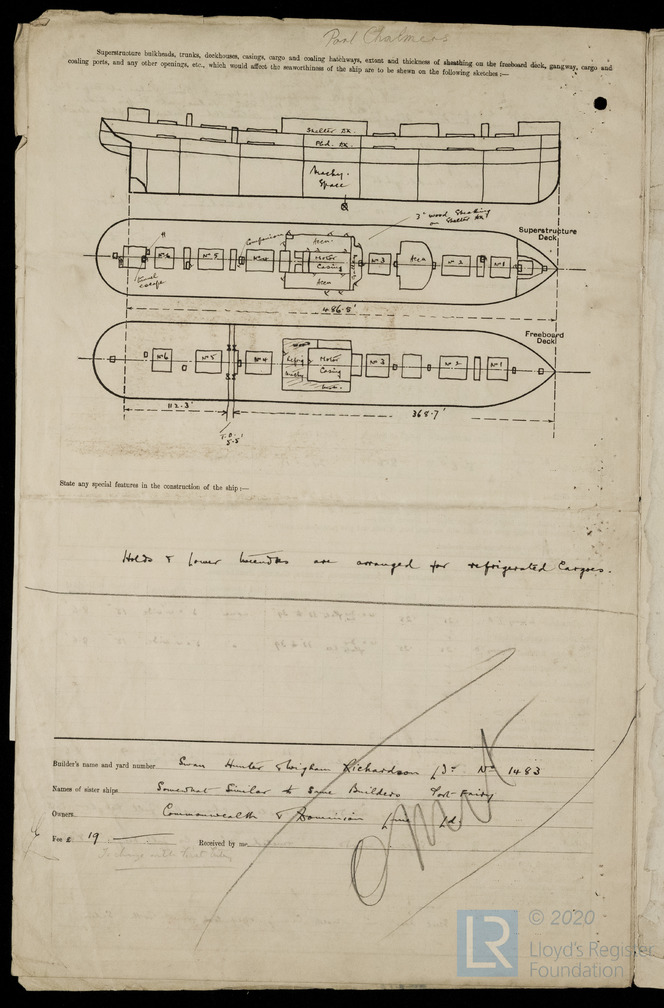 Port Chalmers
Superstructure bulkheads, trunks, deckhouses, casings, cargo and coaling hatchways, extent and thickness of sheathing on the freeboard deck, gangway, cargo and
coaling ports, and any other openings, etc., which would affect the seaworthiness of the ship are to be shewn on the following sketches :—
Shelter Dk.
Machy.
Space
3" wood Sheathing
on Shelter Dk
Superstructure
Deck
Companion
Accn
Nº 5
Motor
Casing
Nº 3
Accn
Nº 2
Nº 1
Accn
tunnel
escape
486·8'
Freeboard
Deck
Nº 6
Nº 5
Nº 4
Refrig
Machy
Motor
Casing
Nº 3
Nº 2
Nº 1
112·3'
368·7'
T.O.
5·8'
State any special features in the construction of the ship :—
Holds & lower tweendks are arranged for refrigerated Cargoes.
Builder's name and yard number Swan Hunter & Wigham Richardson Ld. Nº 1483
Names of sister ships Somewhat Similar to Same Builders Port Fairy
Owners Commonwealth & Dominion Line Ld.
Fee £ 19
Received by me
To charge with first Entry
Omit
LR
© 2020
Lloyd's Register
Foundation